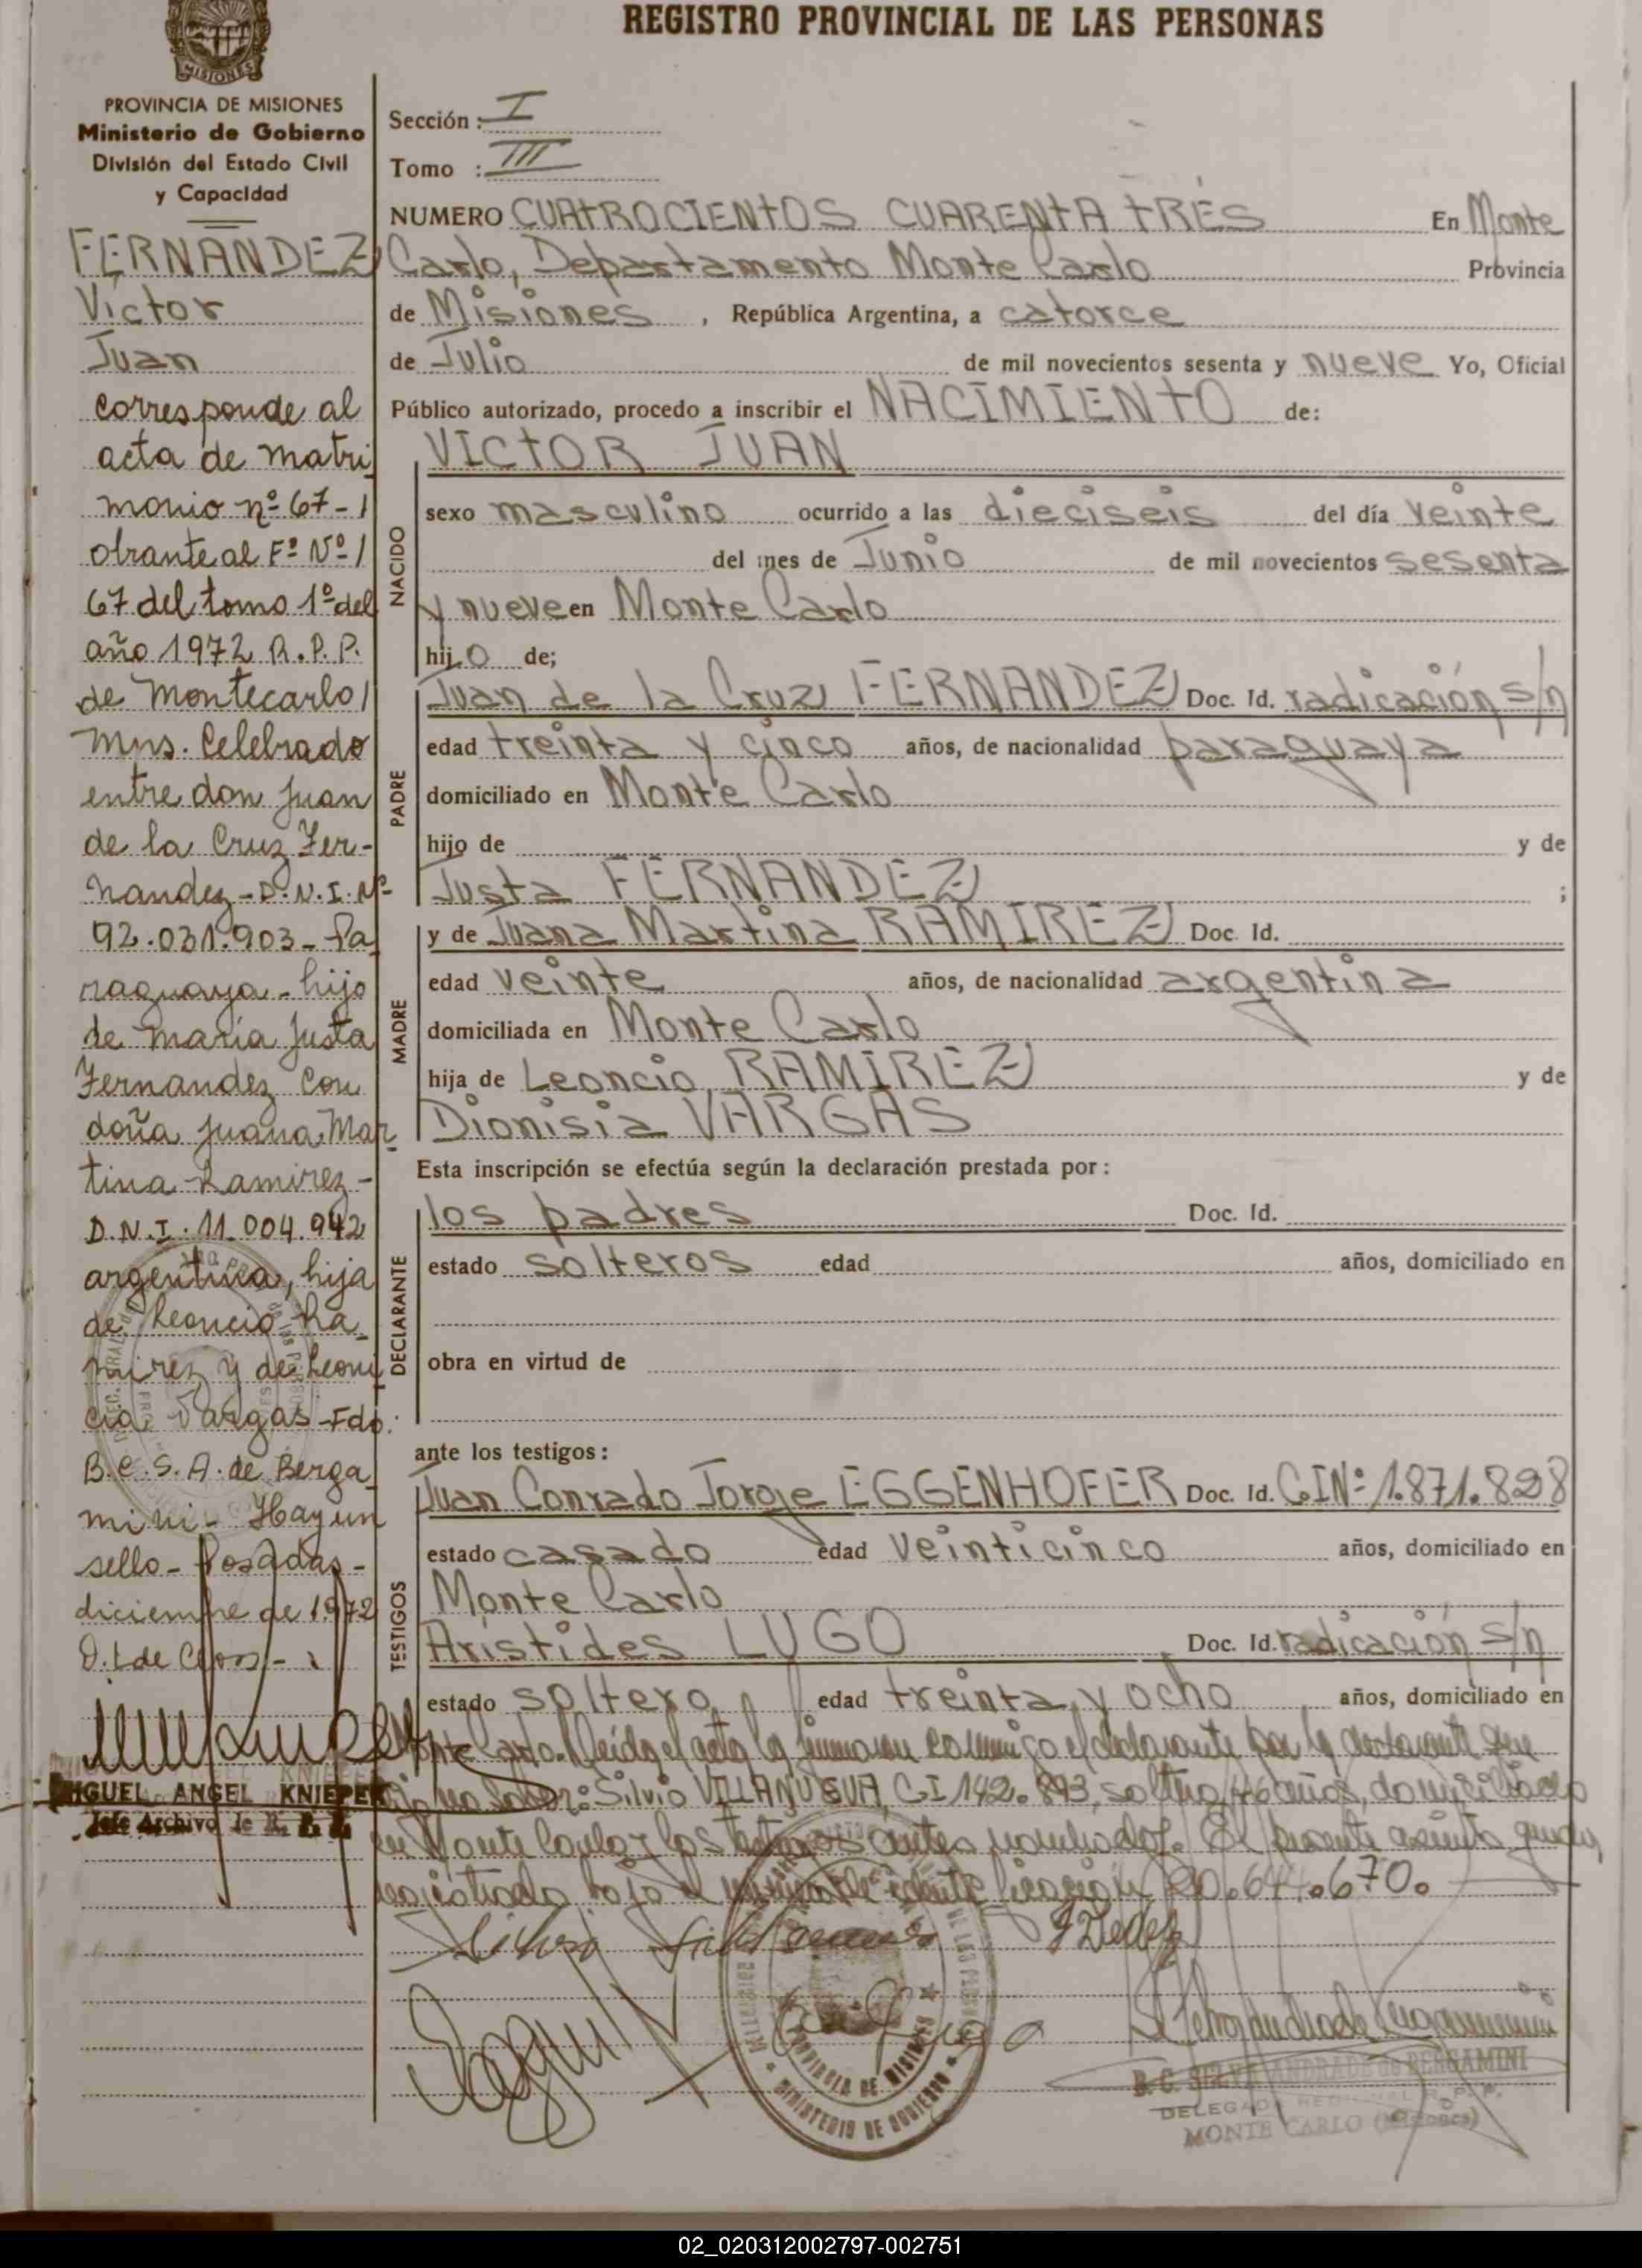 REGISTRO PROVINCIAL DE LAS PERSONAS
MISIONES
PROVINCIA DE MISIONES
Ministerio de Gobierno
División del Estado Civil
y Capacidad
FERNANDEZ
Víctor
Juan
corresponde al
acta de matri
monio nº 67-1
obrante al Fº Nº 1
67 del tomo 1º del
año 1972 R.P.P.
de Montecarlo/
Mns. Celebrado
entre don Juan
de la Cruz Fer-
nandez - D.N.I. Nº
92.031.903 - Pa
raguaya - hijo
de María Justa
Fernandez con
doña Juana Mar
tina Ramirez -
D.N.I. 11.004.942
argentina, hija
de Leoncio Ra
mirez y de Leoni
cia Vargas - Fdo.
B.C.S.A. de Berga
mini - Hay un
sello - Posadas -
diciembre de 1972
MIGUEL ANGEL KNIEPER
Jefe Archivo de R. P. P.
Sección: I
Tomo : III
NUMERO CUATROCIENTOS CUARENTA TRES En Monte
Carlo, Departamento Monte Carlo Provincia
de Misiones, República Argentina, a catorce
de Julio de mil novecientos sesenta y nueve Yo, Oficial
Público autorizado, procedo a inscribir el NACIMIENTO de:
VICTOR JUAN
NACIDO
sexo masculino ocurrido a las dieciseis del día veinte
del mes de Junio de mil novecientos sesenta
y nueve en Monte Carlo
hijo de;
PADRE
Juan de la Cruz FERNANDEZ Doc. Id. radicación s/n
edad treinta y cinco años, de nacionalidad paraguaya
domiciliado en Monte Carlo
hijo de y de
Justa FERNANDEZ ;
MADRE
y de Juana Martina RAMIREZ Doc. Id.
edad veinte años, de nacionalidad argentina
domiciliada en Monte Carlo
hija de Leoncio RAMIREZ y de
Dionisia VARGAS
Esta inscripción se efectúa según la declaración prestada por:
DECLARANTE
los padres Doc. Id.
estado solteros edad años, domiciliado en
obra en virtud de
ante los testigos:
TESTIGOS
Juan Conrado Jorge EGGENHOFER Doc. Id. C.INº 1.871.828
estado casado edad veinticinco años, domiciliado en
Monte Carlo
Arístides LUGO Doc. Id. radicación s/n
estado soltero edad treinta y ocho años, domiciliado en
Monte Carlo. Leída el acta la firman conmigo el declarante por la declarante que
dijo no saber: Silvio VILLANUEVA, CI 142.893, soltero, 46 años, domiciliado
en Monte Carlo y los testigos antes nombrados. El presente asiento queda
registrado bajo el identificación 20.644.670.
PROVINCIA DE MISIONES
MINISTERIO DE GOBIERNO
B. C. SILVA ANDRADE de BERGAMINI
DELEGADA REGIONAL R. P. P.
MONTE CARLO (Misiones)
02_020312002797-002751